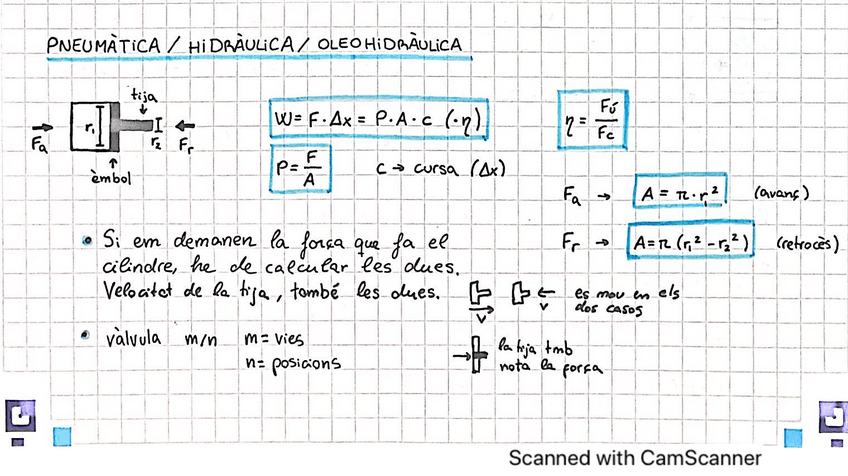 PNEUMÀTICA / HIDRÀULICA / OLEOHIDRÀULICA
tija
r₁
r₂
Fa
Fr
èmbol
W = F · Δx = P · A · c (· η)
P = F / A
c → cursa (Δx)
η = Fú / Fc
Fa → A = π · r₁² (avanç)
Fr → A = π (r₁² - r₂²) (retrocès)
• Si em demanen la força que fa el
cilindre, he de calcular les dues.
Velocitat de la tija, també les dues.
v
v
es mou en els
dos casos
• vàlvula m/n m = vies
n = posicions
la tija tmb
nota la força
Scanned with CamScanner